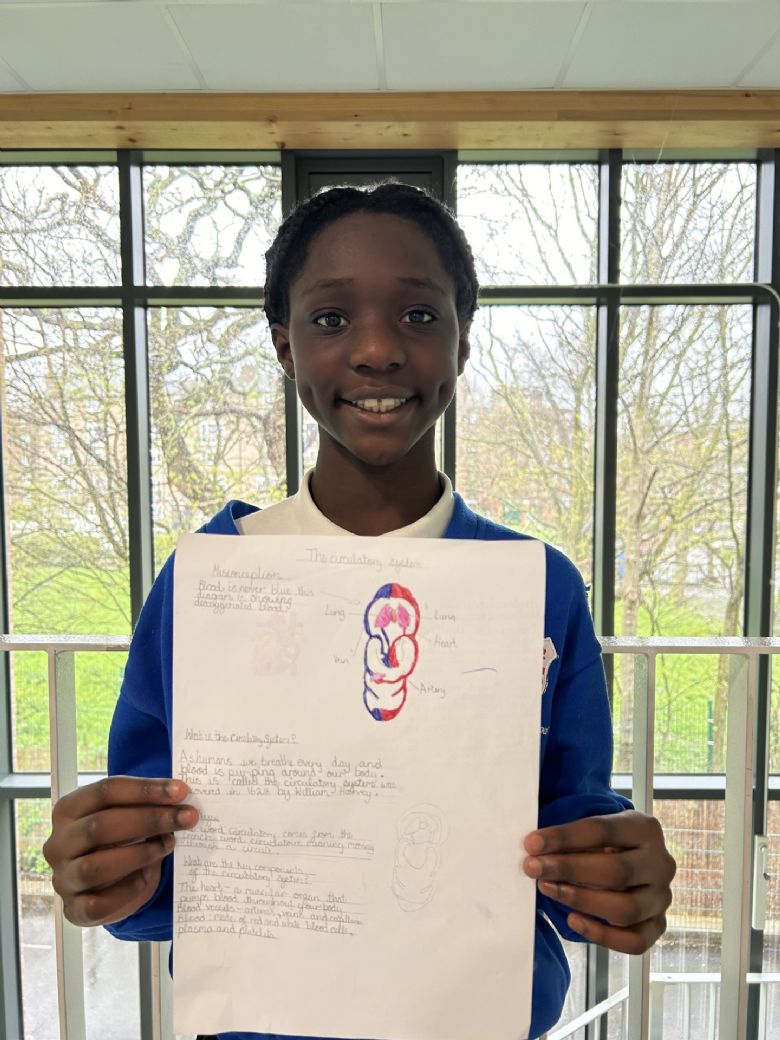 The circulatory system
Misconception
Blood is never blue, this
diagram is showing
deoxygenated blood.
Lung
Lung
Heart
Vein
Artery
What is the Circulatory System?
As humans we breathe every day and
blood is pumping around our body.
This is called the circulatory system was
in 1628 by William Harvey.
word circulatory comes from the
french word circulatoire meaning moving
through a circuit.
What are the key components
of the circulatory system?
The heart - a muscular organ that
pumps blood throughout your body
Blood vessels - arteries, veins and capillaries
Blood: made of red and white blood cells,
plasma and platelets